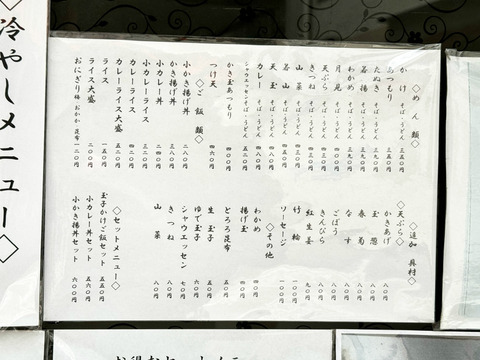 ◇めん類◇
かけ そば・うどん 三五〇円
あつもり そば・うどん 三五〇円
たぬき そば・うどん 三五〇円
若揚 そば・うどん 三九〇円
わかめ そば・うどん 三九〇円
月見 そば・うどん
天ぷら そば・うどん
きつね そば・うどん
山菜 そば・うどん
若山 そば・うどん
天玉 そば・うどん
カレー そば・うどん 四八〇円
シャウエッセンそば・うどん
かき玉あつもり 四〇〇円
つけ天 四六〇円
◇ご飯類◇
小かき揚げ丼 二八〇円
かき揚げ丼
小カレー丼 三二〇円
小カレーライス 三二〇円
カレーライス 四二〇円
カレーライス大盛 五二〇円
ライス 一五〇円
ライス大盛 二〇〇円
おにぎり 梅 おかか 昆布 一二〇円
◇追加具材◇
◇天ぷら◇
かきあげ 八〇円
玉葱
春菊
なす
ごぼう
きんぴら
紅生姜 九〇円
竹輪 一〇〇円
ソーセージ 一〇〇円
◇その他
わかめ 四〇円
揚げ玉 四〇円
とろろ昆布
生玉子 五〇円
ゆで玉子
シャウエッセン 七〇円
きつね 八〇円
山菜 八〇円
◇セットメニュー◇
玉子かけご飯セット 五五〇円
小カレー丼セット 五六〇円
小かき揚丼セット 六〇〇円
◇冷やしメニュー◇